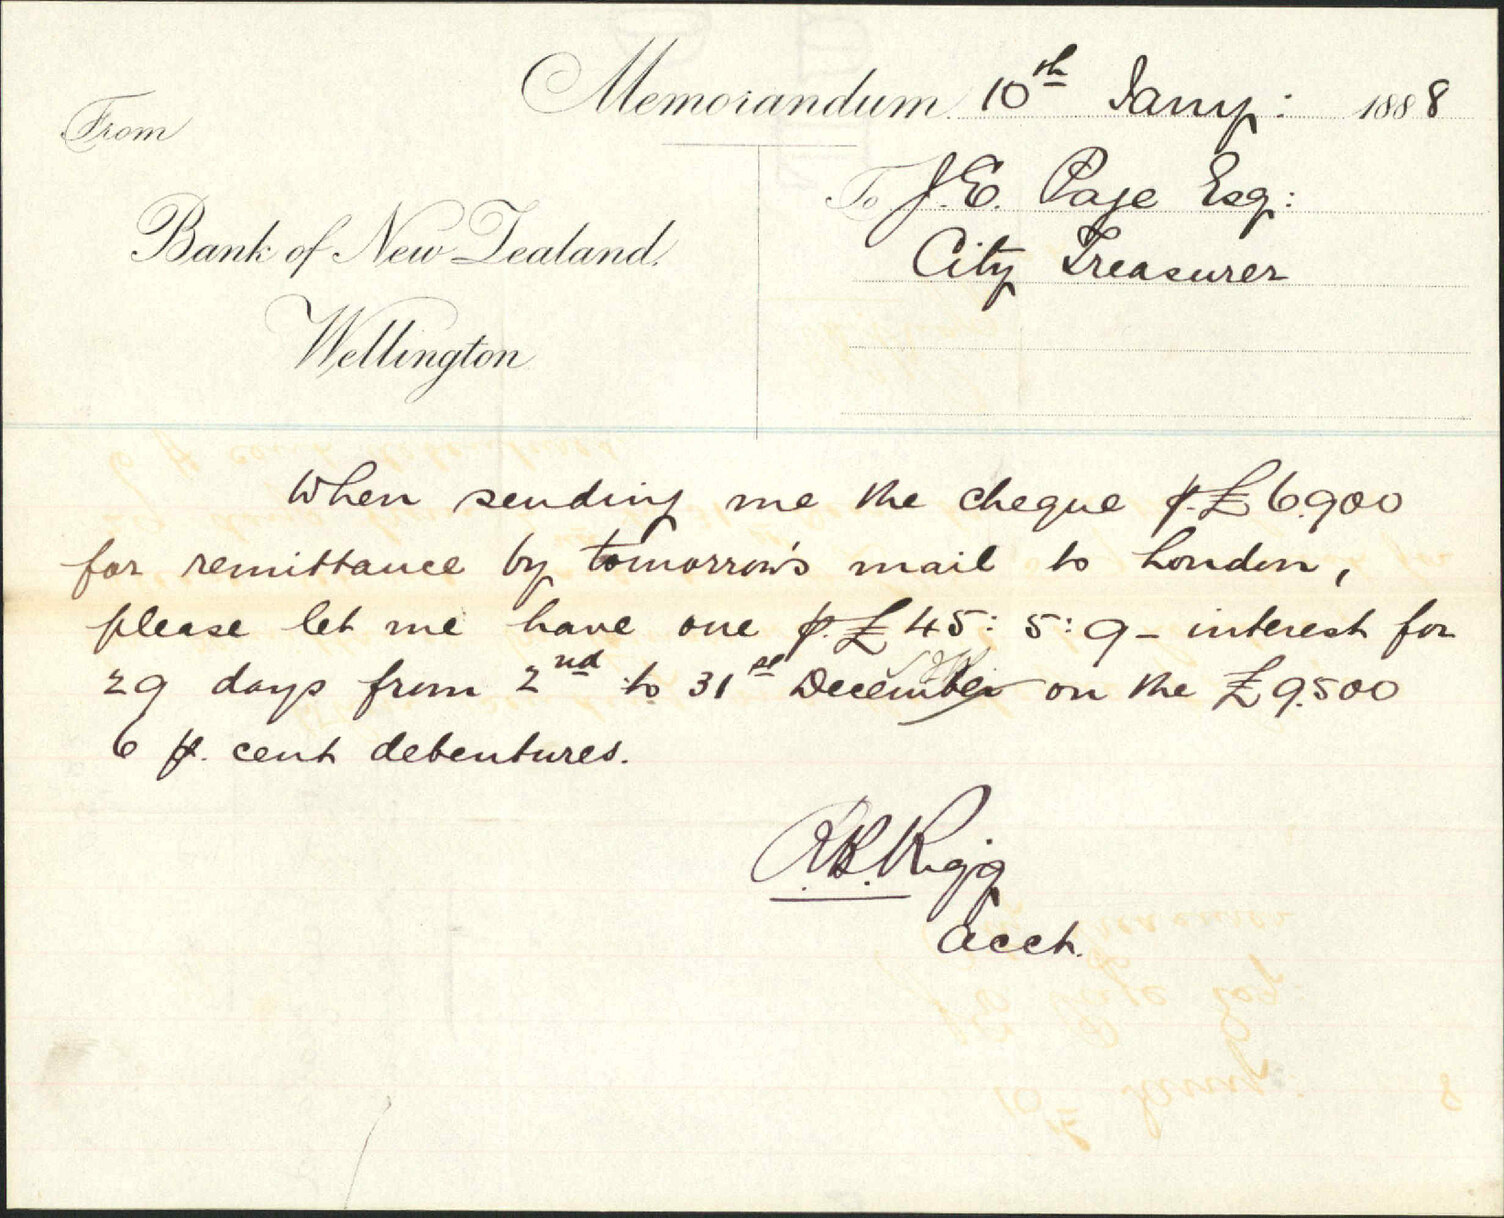 Memorandum 10th Jany: 1888
From
To J. E. Page Esq:
City Treasurer
Bank of New Zealand,
Wellington
When sending me the cheque p. £6.900
for remittance by tomorrow's mail to London,
please let me have one p. £45: 5: 9 – interest for
29 days from 2nd to 31st December on the £9.500
6 p. cent debentures.
R.B. Rigg
Acct.